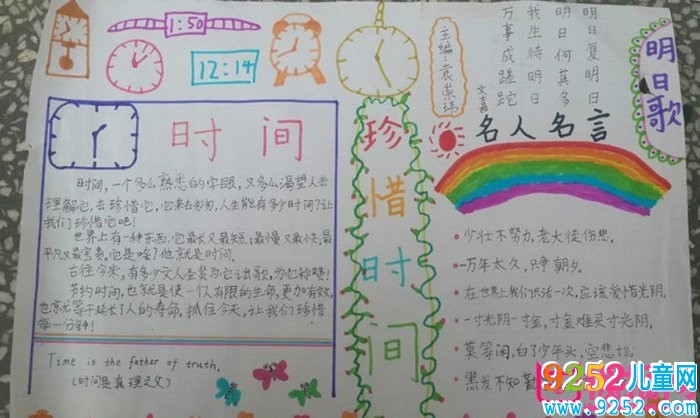 1:50
12:14
主编:袁崇玮
明日复明日
明日何其多
我生待明日
万事成蹉跎
文嘉
明日歌
时间
时间,一个多么熟悉的字眼,又多么渴望人去
理解它,去珍惜它,它来去匆匆,人生能有多少时间?让
我们珍惜它吧!
世界上有一种东西,它最长又最短,最慢又最快,最
平凡又最宝贵。它是啥?他就是时间。
古往今来,有多少文人圣贤为它讴歌,为它称赞!
节约时间,也就是使一个人有限的生命,更加有效,
也就等于延长了人的寿命。抓住今天,让我们珍惜
每一分钟!
Time is the father of truth.
(时间是真理之父)
珍惜时间
名人名言
少壮不努力,老大徒伤悲。
一万年太久,只争朝夕。
在世界上我们只活一次,应该爱惜光阴。
一寸光阴一寸金,寸金难买寸光阴。
莫等闲,白了少年头,空悲切。
黑发不知勤
9252儿童网
www.9252.com